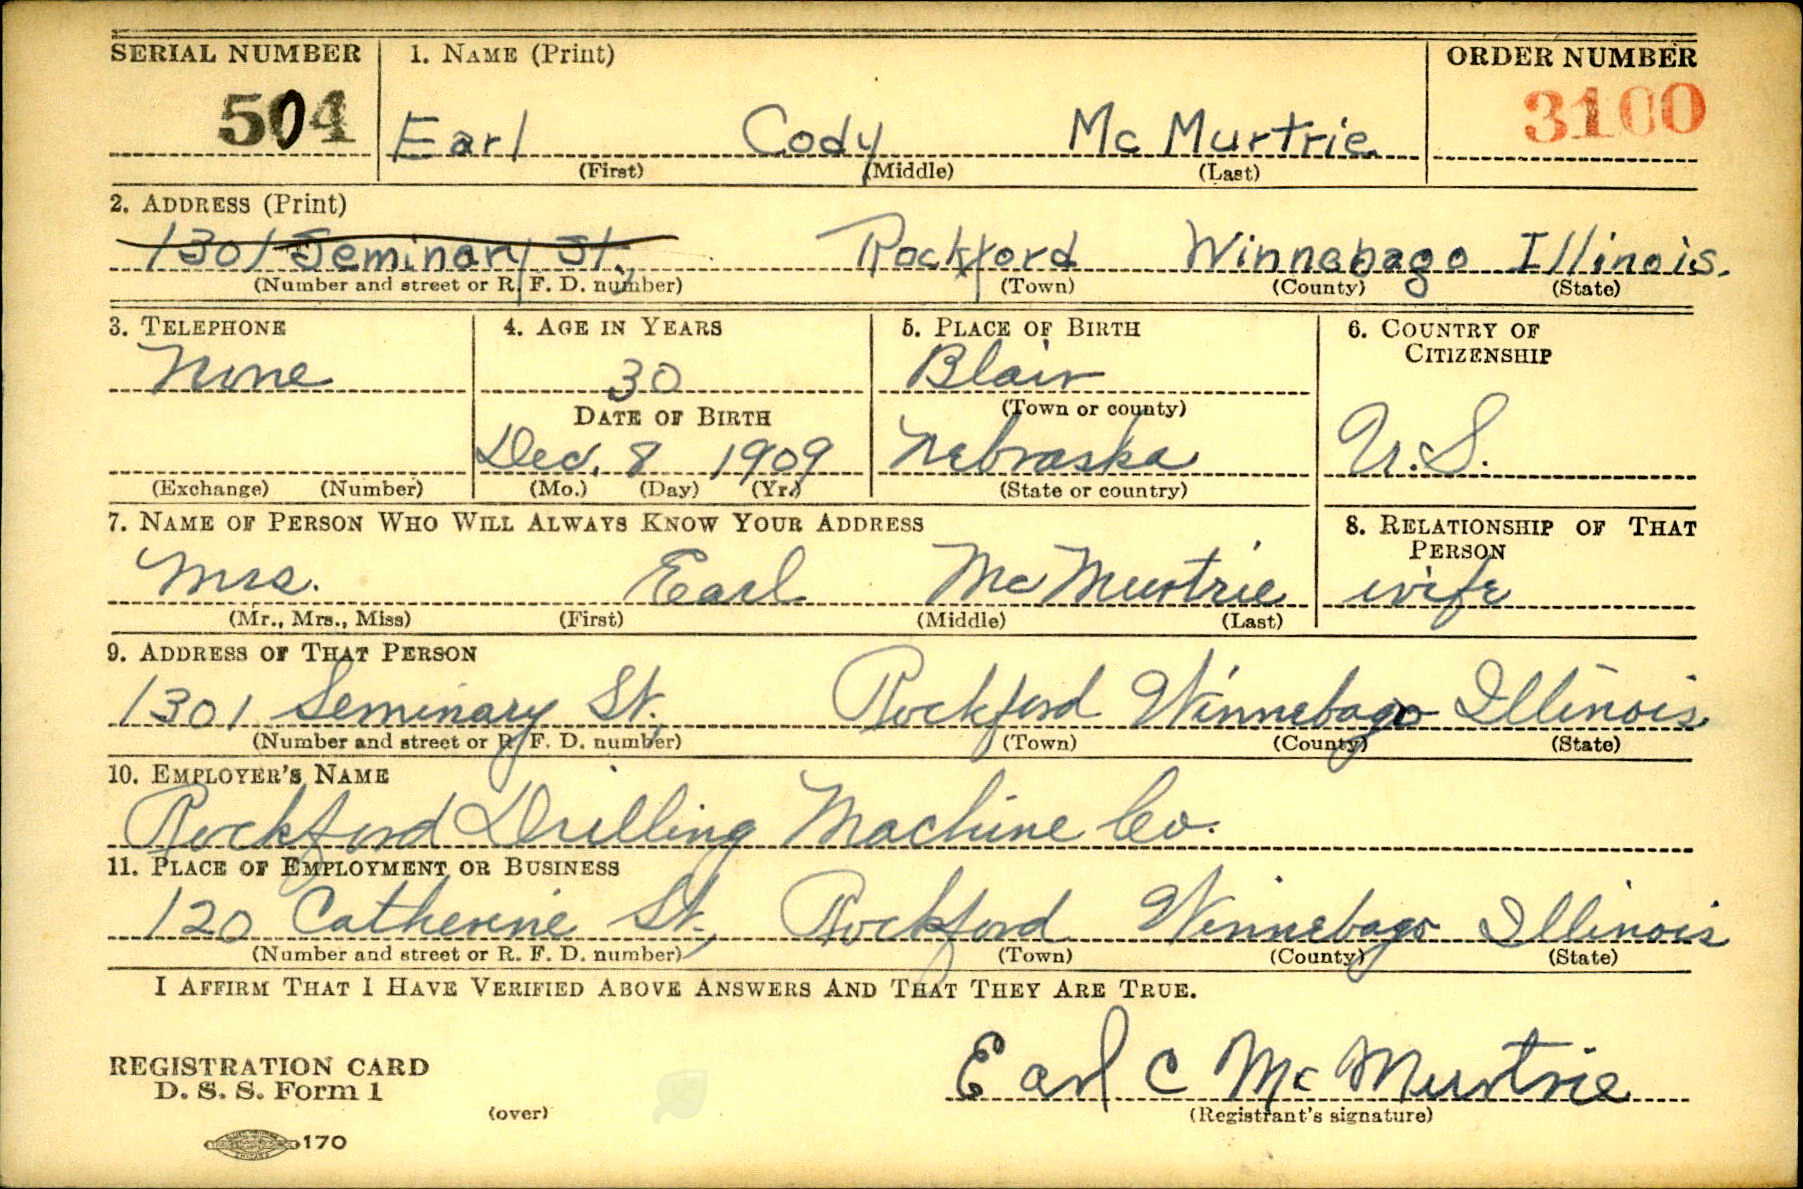 SERIAL NUMBER 1. NAME (Print) ORDER NUMBER
504 Earl Cody McMurtrie 3100
(First) (Middle) (Last)
2. ADDRESS (Print)
1301 Seminary St. Rockford Winnebago Illinois.
(Number and street or R. F. D. number) (Town) (County) (State)
3. TELEPHONE 4. AGE IN YEARS 5. PLACE OF BIRTH 6. COUNTRY OF
CITIZENSHIP
None 30 Blair
DATE OF BIRTH (Town or county)
Dec. 8 1909 Nebraska U.S.
(Exchange) (Number) (Mo.) (Day) (Yr.) (State or country)
7. NAME OF PERSON WHO WILL ALWAYS KNOW YOUR ADDRESS 8. RELATIONSHIP OF THAT
PERSON
Mrs. Earl McMurtrie wife
(Mr., Mrs., Miss) (First) (Middle) (Last)
9. ADDRESS OF THAT PERSON
1301 Seminary St. Rockford Winnebago Illinois
(Number and street or R. F. D. number) (Town) (County) (State)
10. EMPLOYER'S NAME
Rockford Drilling Machine Co.
11. PLACE OF EMPLOYMENT OR BUSINESS
120 Catherine St., Rockford Winnebago Illinois
(Number and street or R. F. D. number) (Town) (County) (State)
I AFFIRM THAT I HAVE VERIFIED ABOVE ANSWERS AND THAT THEY ARE TRUE.
REGISTRATION CARD
D. S. S. Form 1
Earl C McMurtrie
(over) (Registrant's signature)
170